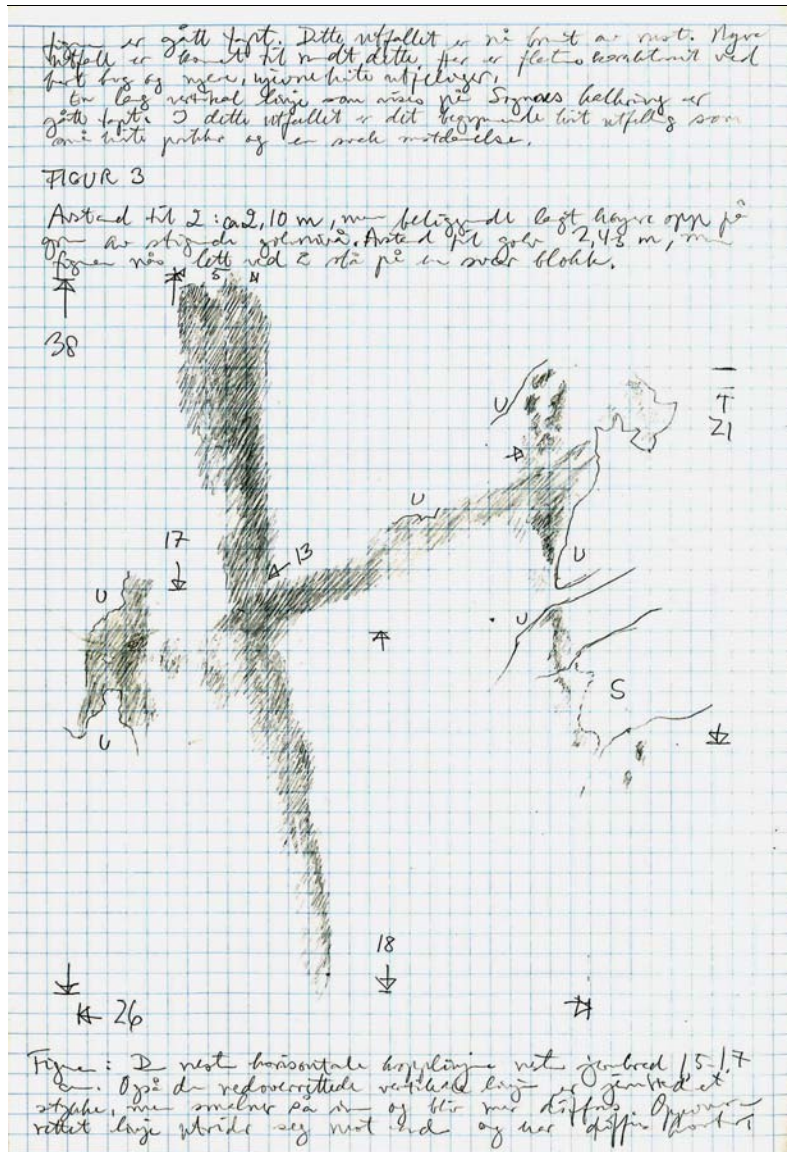 figuren er gått tapt. Dette utfallet er nå brunt av rust. Nyere
utfall er kommet til rundt dette. Her er flaten karakterisert ved
sort bug og nyere, ujevne hvite utfellinger.
En lang vertikal linje som vises på Sognnes kalkering er
gått tapt. I dette utfallet er det begynnende hvit utfelling som
små hvite prikker og en svak mutdannelse.
FIGUR 3
Avstand til 2: ca 2,10 m, men beliggende langt høyere opp på
grunn av stigende gulvnivå. Avstand til gulv 2,43 m, men
figuren nås lett ved å stå på en svær blokk.
5
38
U
T
21
U
17
13
U
U
U
S
U
18
26
Figuren: De nesten horisontale kropplinjene nesten jevnbred 1,5-1,7
cm. Også den nedoverrettede vertikale linjen er jevnbred et
stykke, men smalner så inn og blir mer diffus. Oppover-
rettet linje utvider seg mot enden og har diffus